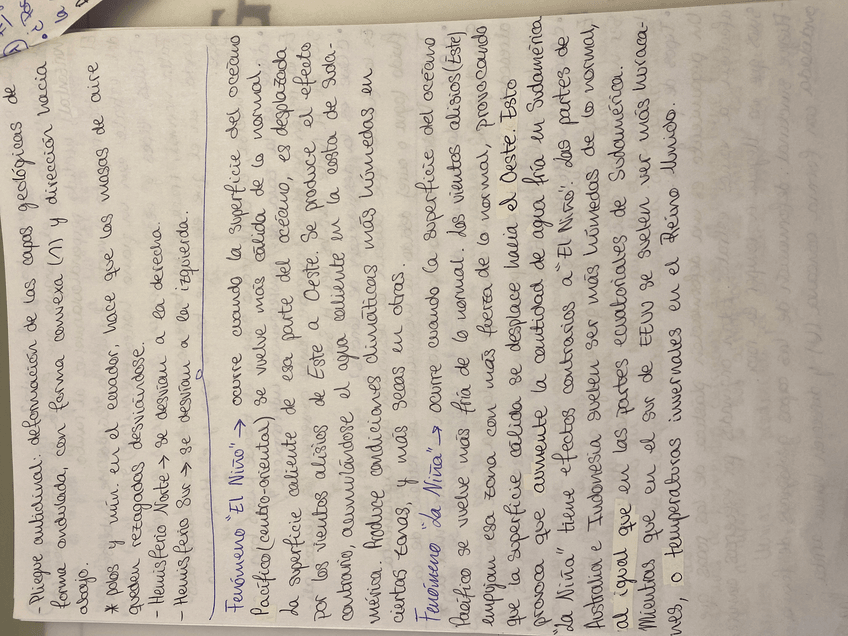 - Pliegue anticlinal: deformación de las capas geológicas de
forma ondulada, con forma convexa (∩) y dirección hacia
abajo.
* polos y mín. en el ecuador, hace que las masas de aire
queden rezagadas desviándose.
- Hemisferio Norte → se desvían a la derecha.
- Hemisferio Sur → se desvían a la izquierda.
Fenómeno "El Niño" → ocurre cuando la superficie del océano
Pacífico (centro-oriental) se vuelve más cálida de lo normal.
La superficie caliente de esa parte del océano, es desplazada
por los vientos alisios de Este a Oeste. Se produce el efecto
contrario, acumulándose el agua caliente en la costa de Suda-
mérica. Produce condiciones climáticas más húmedas en
ciertas zonas, y más secas en otras.
Fenómeno "La Niña" → ocurre cuando la superficie del océano
Pacífico se vuelve más fría de lo normal. Los vientos alisios (Este)
empujan esa zona con más fuerza de lo normal, provocando
que la superficie cálida se desplace hacia el Oeste. Esto
provoca que aumente la cantidad de agua fría en Sudamérica
"La Niña" tiene efectos contrarios a "El Niño". Las partes de
Australia e Indonesia suelen ser más húmedas de lo normal,
al igual que en las partes ecuatoriales de Sudamérica.
Mientras que en el sur de EEUU se suelen ver más huraca-
nes, o temperaturas invernales en el Reino Unido.